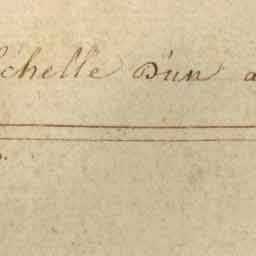 chelle D'un a